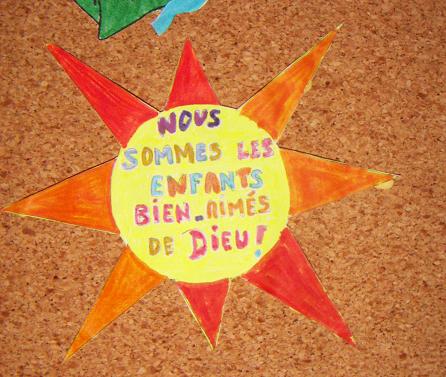 NOUS
SOMMES LES
ENFANTS
BIEN-AIMÉS
DE DIEU!